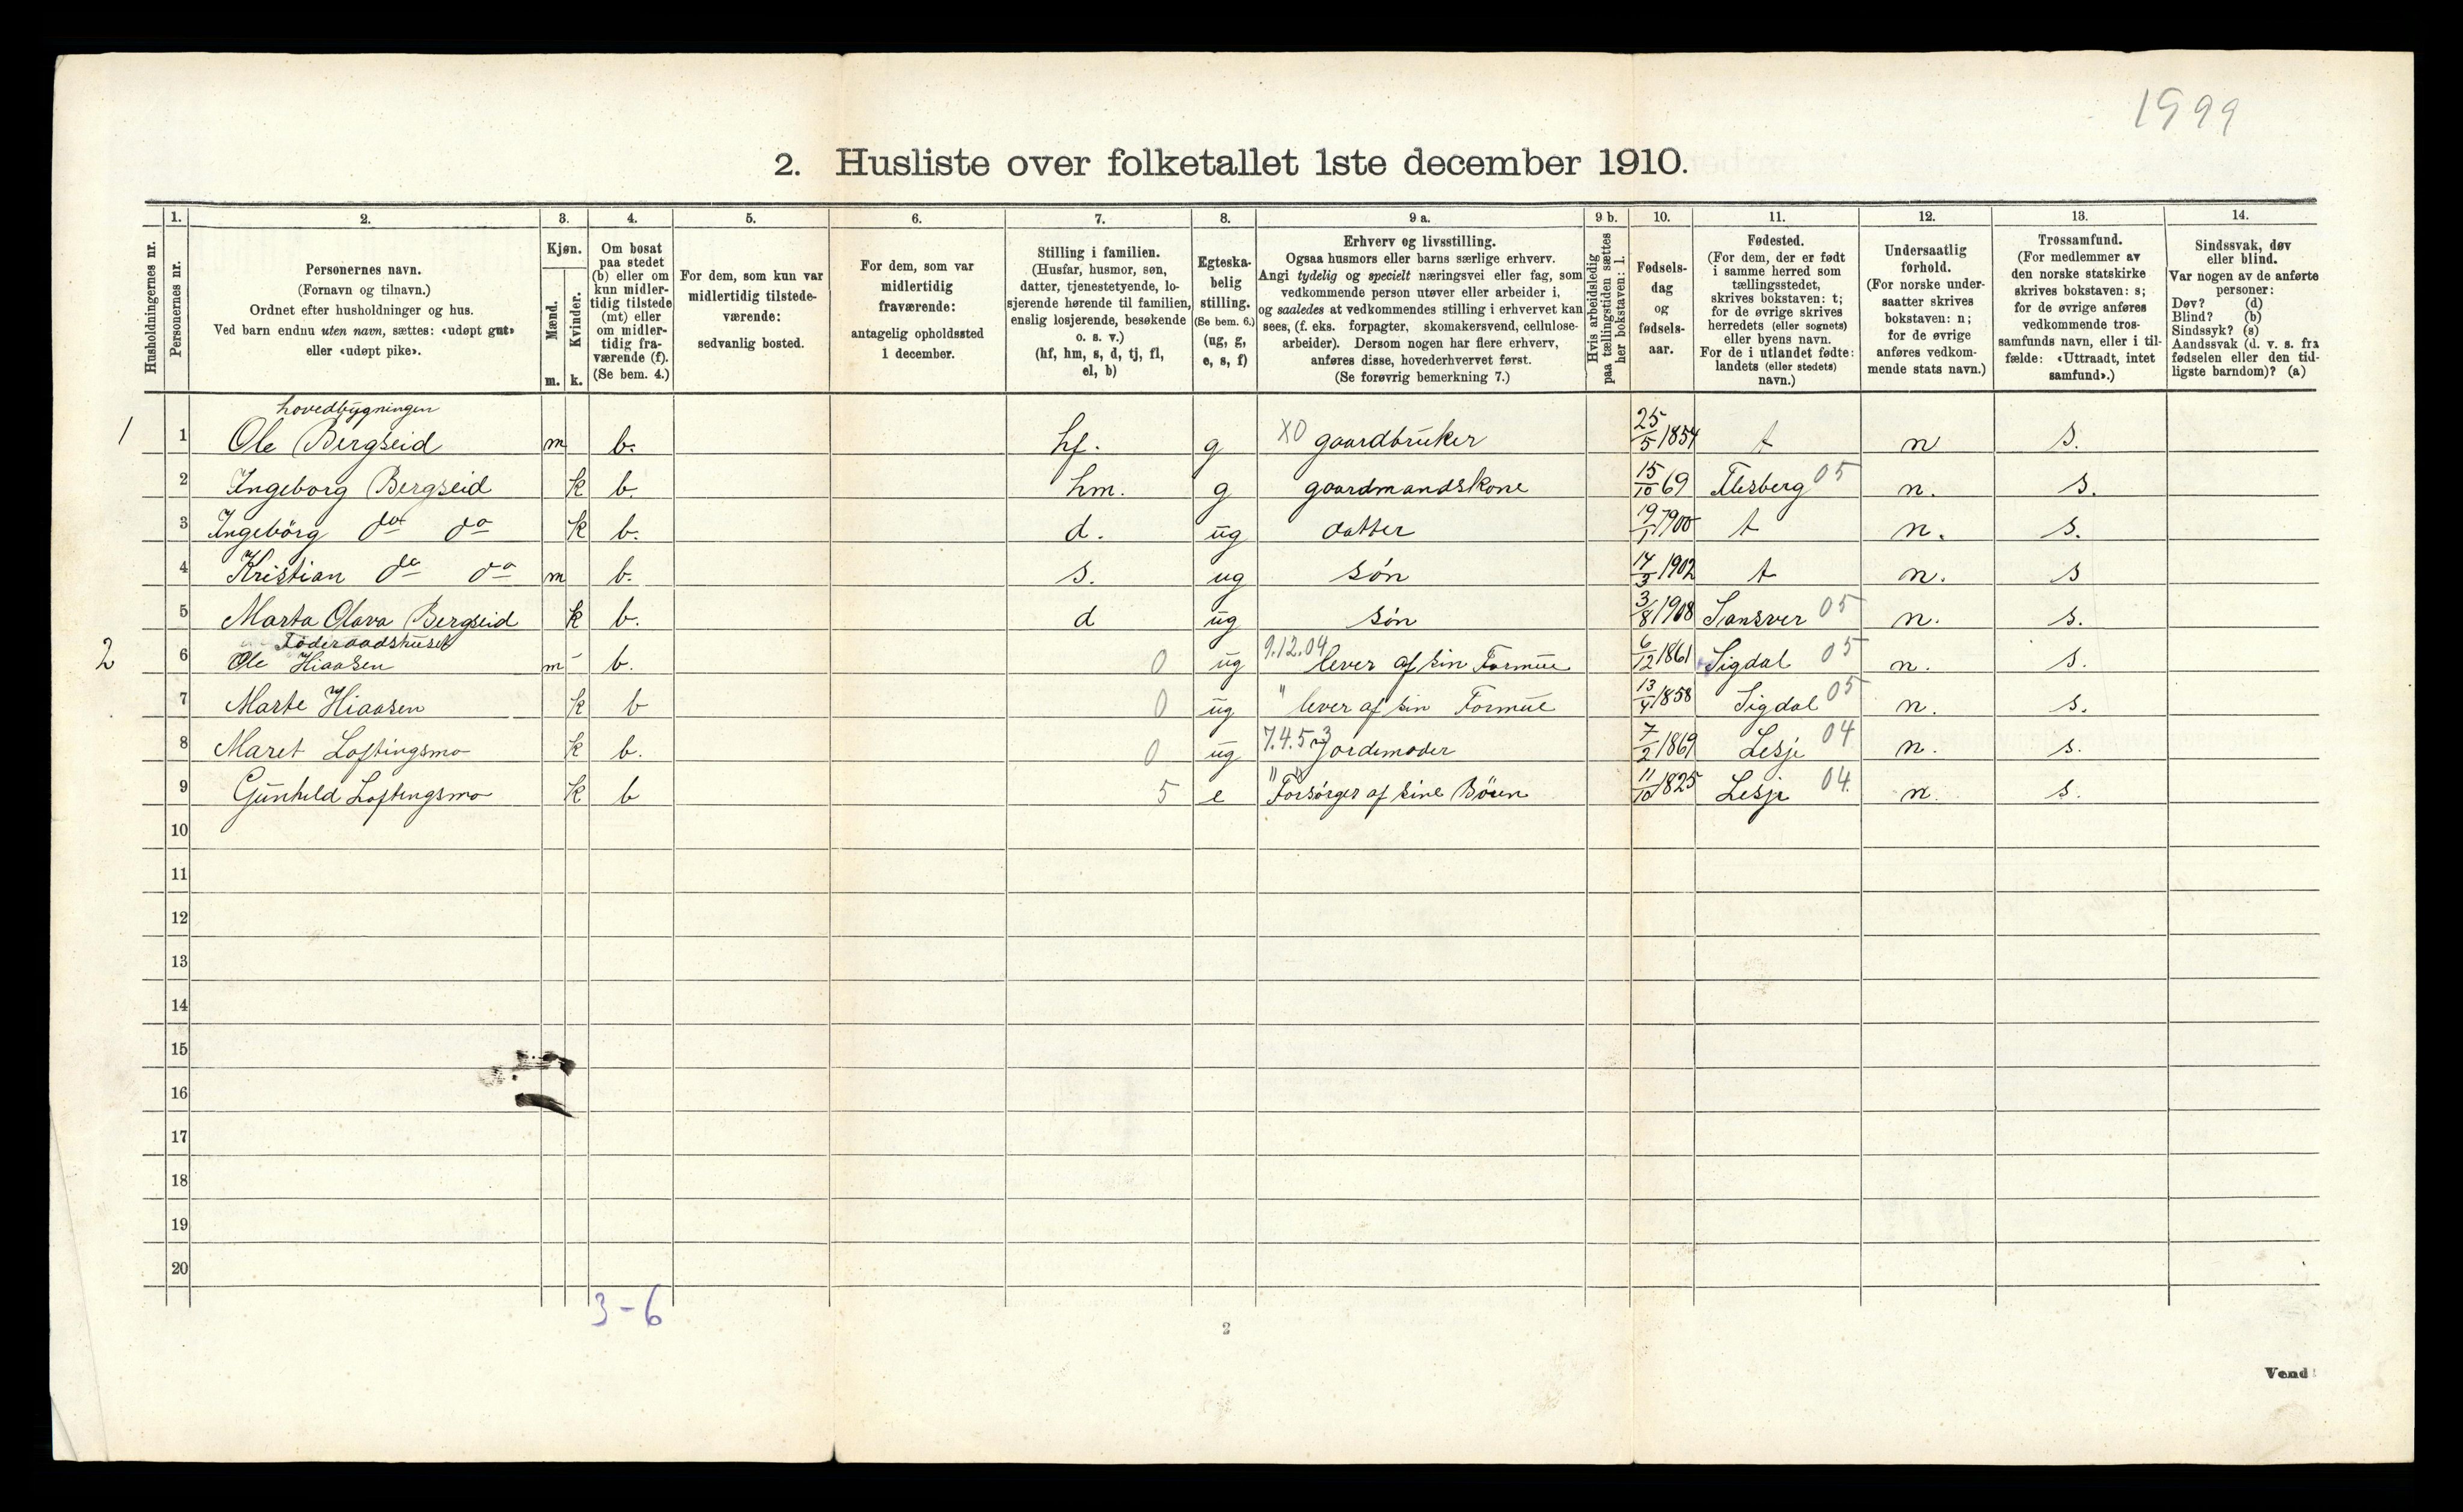 1999
2. Husliste over folketallet 1ste december 1910.
Husholdningernes nr.
1. Personernes nr.
2. Personernes navn. (Fornavn og tilnavn.) Ordnet efter husholdninger og hus. Ved barn endnu uten navn, sættes: «udøpt gut» eller «udøpt pike».
3. Kjøn. Mænd. m. Kvinder. k.
4. Om bosat paa stedet (b) eller om kun midlertidig tilstede (mt) eller om midlertidig fraværende (f). (Se bem. 4.)
5. For dem, som kun var midlertidig tilstedeværende: sedvanlig bosted.
6. For dem, som var midlertidig fraværende: antagelig opholdssted 1 december.
7. Stilling i familien. (Husfar, husmor, søn, datter, tjenestetyende, losjerende hørende til familien, enslig losjerende, besøkende o. s. v.) (hf, hm, s, d, tj, fl, el, b)
8. Egteskabelig stilling. (Se bem. 6.) (ug, g, e, s, f)
9 a. Erhverv og livsstilling. Ogsaa husmors eller barns særlige erhverv. Angi tydelig og specielt næringsvei eller fag, som vedkommende person utøver eller arbeider i, og saaledes at vedkommendes stilling i erhvervet kan sees, (f. eks. forpagter, skomakersvend, cellulosearbeider). Dersom nogen har flere erhverv, anføres disse, hovederhvervet først. (Se forøvrig bemerkning 7.)
9 b. Hvis arbeidsledig paa tællingstiden sættes her bokstaven: l.
10. Fødselsdag og fødselsaar.
11. Fødested. (For dem, der er født i samme herred som tællingsstedet, skrives bokstaven: t; for de øvrige skrives herredets (eller sognets) eller byens navn. For de i utlandet fødte: landets (eller stedets) navn.)
12. Undersaatlig forhold. (For norske undersaatter skrives bokstaven: n; for de øvrige anføres vedkommende stats navn.)
13. Trossamfund. (For medlemmer av den norske statskirke skrives bokstaven: s; for de øvrige anføres vedkommende trossamfunds navn, eller i tilfælde: «Uttraadt, intet samfund».)
14. Sindssvak, døv eller blind. Var nogen av de anførte personer: Døv? (d) Blind? (b) Sindssyk? (s) Aandssvak (d. v. s. fra fødselen eller den tidligste barndom)? (a)
hovedbygningen
1 1 Ole Bergseid m b. hf. g XO gaardbruker 25/5 1854 t n s.
2 Ingeborg Bergseid k b. hm. g gaardmandskone 15/10 69 Flesberg 05 n. s.
3 Ingebörg do do k b. d. ug datter 19/1 1900 t n. s.
4 Kristian do do m b. s. ug søn 14/3 1902 t n. s
5 Marta Olava Bergseid k b. d ug søn 3/8 1908 Sansver 05 n. s.
Föderaadshuset
2 6 Ole Hiaasen m b. 0 ug 9.12.04 lever af sin Formue 6/12 1861 Sigdal 05 n. s.
7 Marte Hiaasen k b 0 ug " lever af sin Formue 13/4 1858 Sigdal 05 n. s.
8 Maret Loftingsmo k b. 0 ug 7.4.53 Jordemoder 7/2 1869 Lesje 04 n. s.
9 Gunhild Loftingsmo k b 5 e " " Forsörges af sine Börn 11/10 1825 Lesje 04. n. s.
10
11
12
13
14
15
16
17
18
19
20
3-6
2
Vend